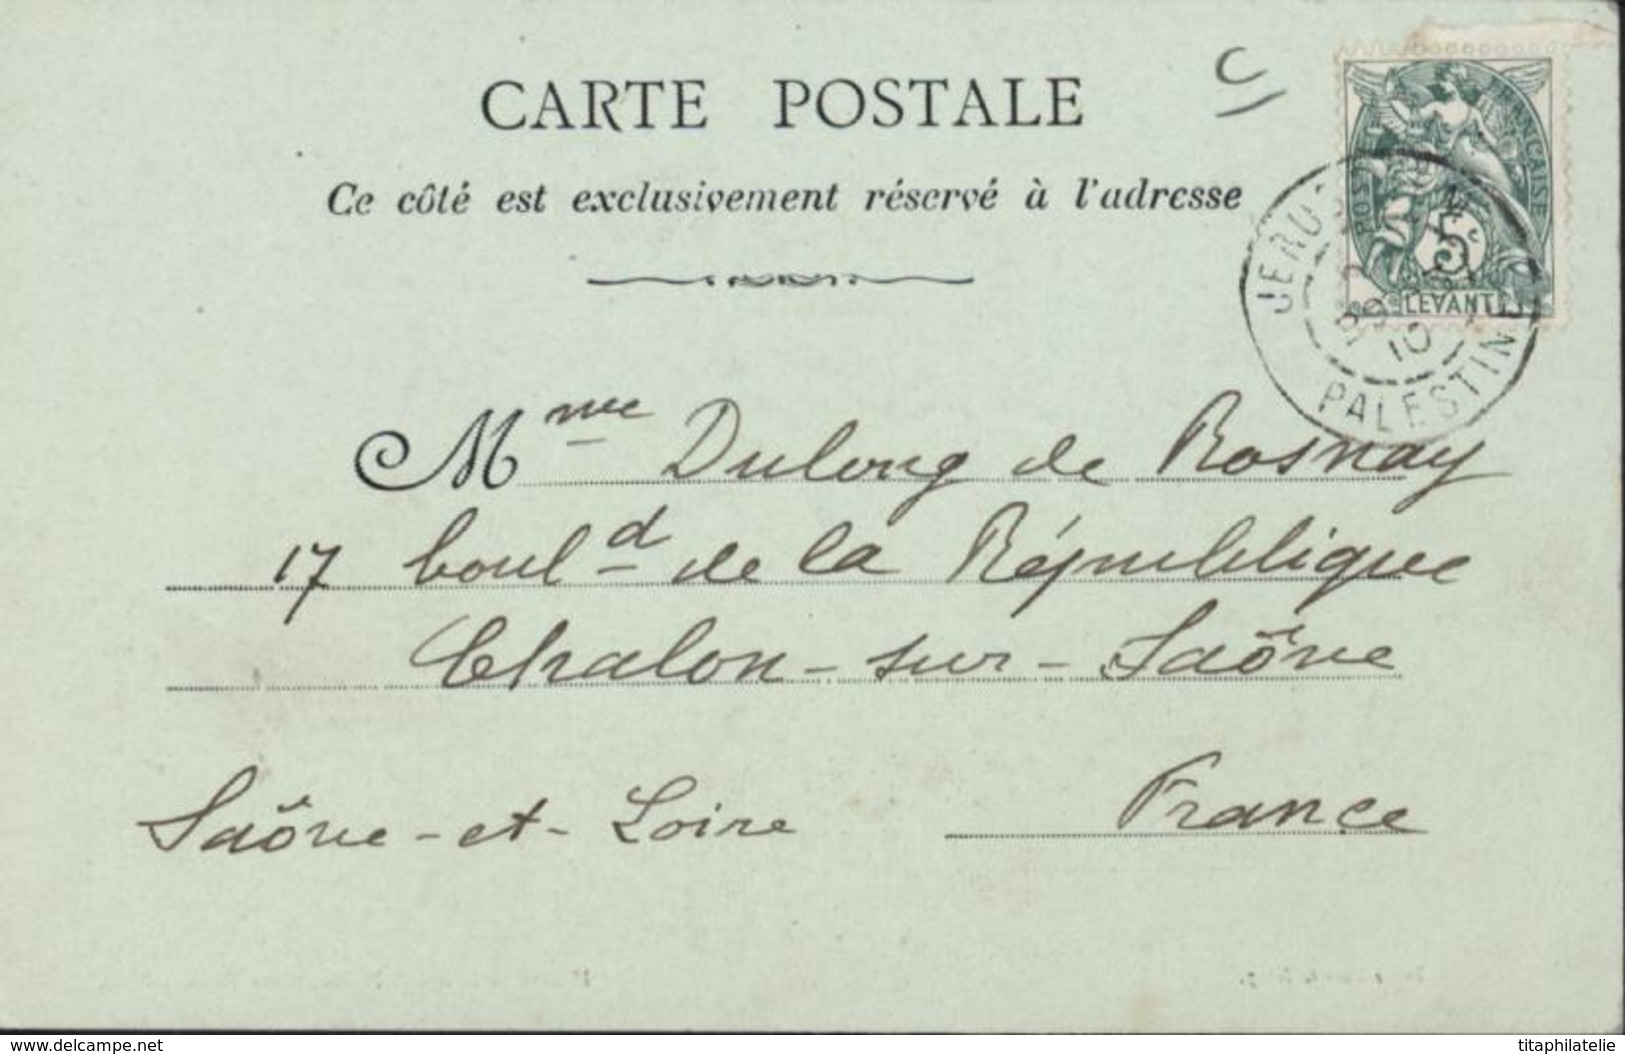 CARTE POSTALE
Ce côté est exclusivement réservé à l'adresse
POSTE FRANÇAISE
5c
LEVANT
PALESTINE
10
Mme Dulong de Rosnay
17 bould de la République
Chalon-sur-Saône
Saône-et-Loire France
www.delcampe.net
titaphilatelie